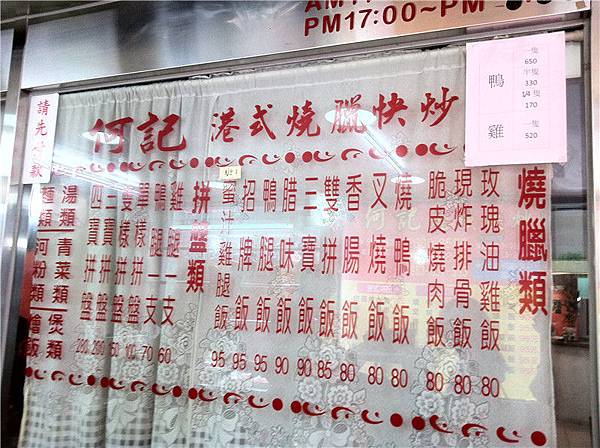 PM17:00~PM
請先付款
何記 港式燒臘快炒
鴨
一隻
650
半隻
330
1/4 隻
170
雞
一隻
520
燒臘類
玫瑰油雞飯 80
現炸排骨飯 80
脆皮燒肉飯 80
燒鴨飯 80
叉燒飯 80
香腸飯 80
雙拼飯 85
三寶飯 90
腊味飯 90
鴨腿飯 95
招牌飯 95
蜜汁雞腿飯 95
拼盤類
雞腿一支 60
鴨腿一支 70
單樣拼盤
雙樣拼盤
三寶拼盤
四寶拼盤
湯類 青菜類 煲類
麵類 河粉類 燴飯